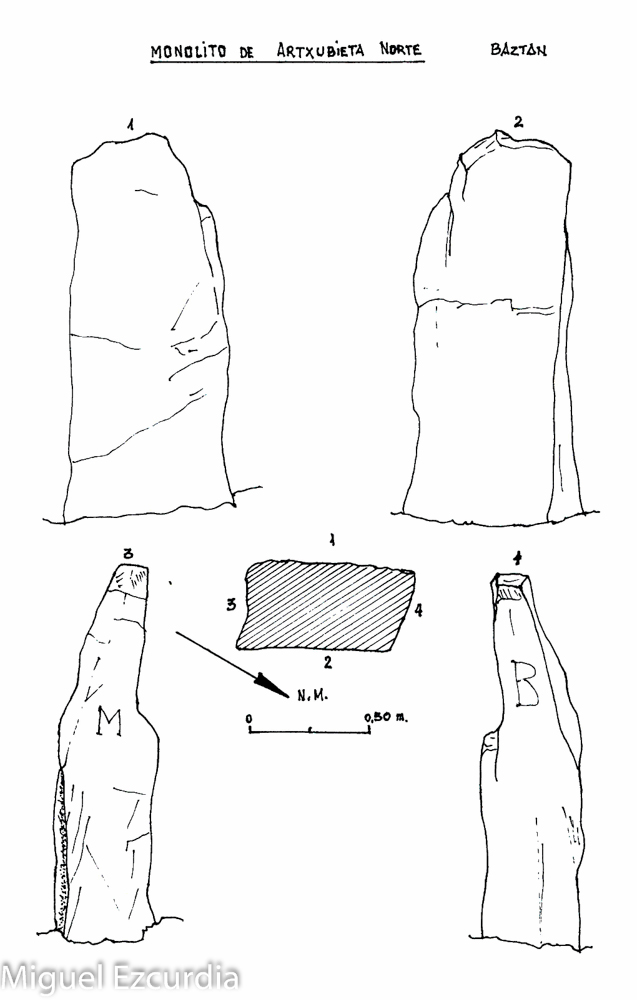 MONOLITO DE ARTXUBIETA NORTE BAZTAN
1 2
3
1
4
3
4
2
N.M.
0 0,50 m.
M
B
Miguel Ezcurdia